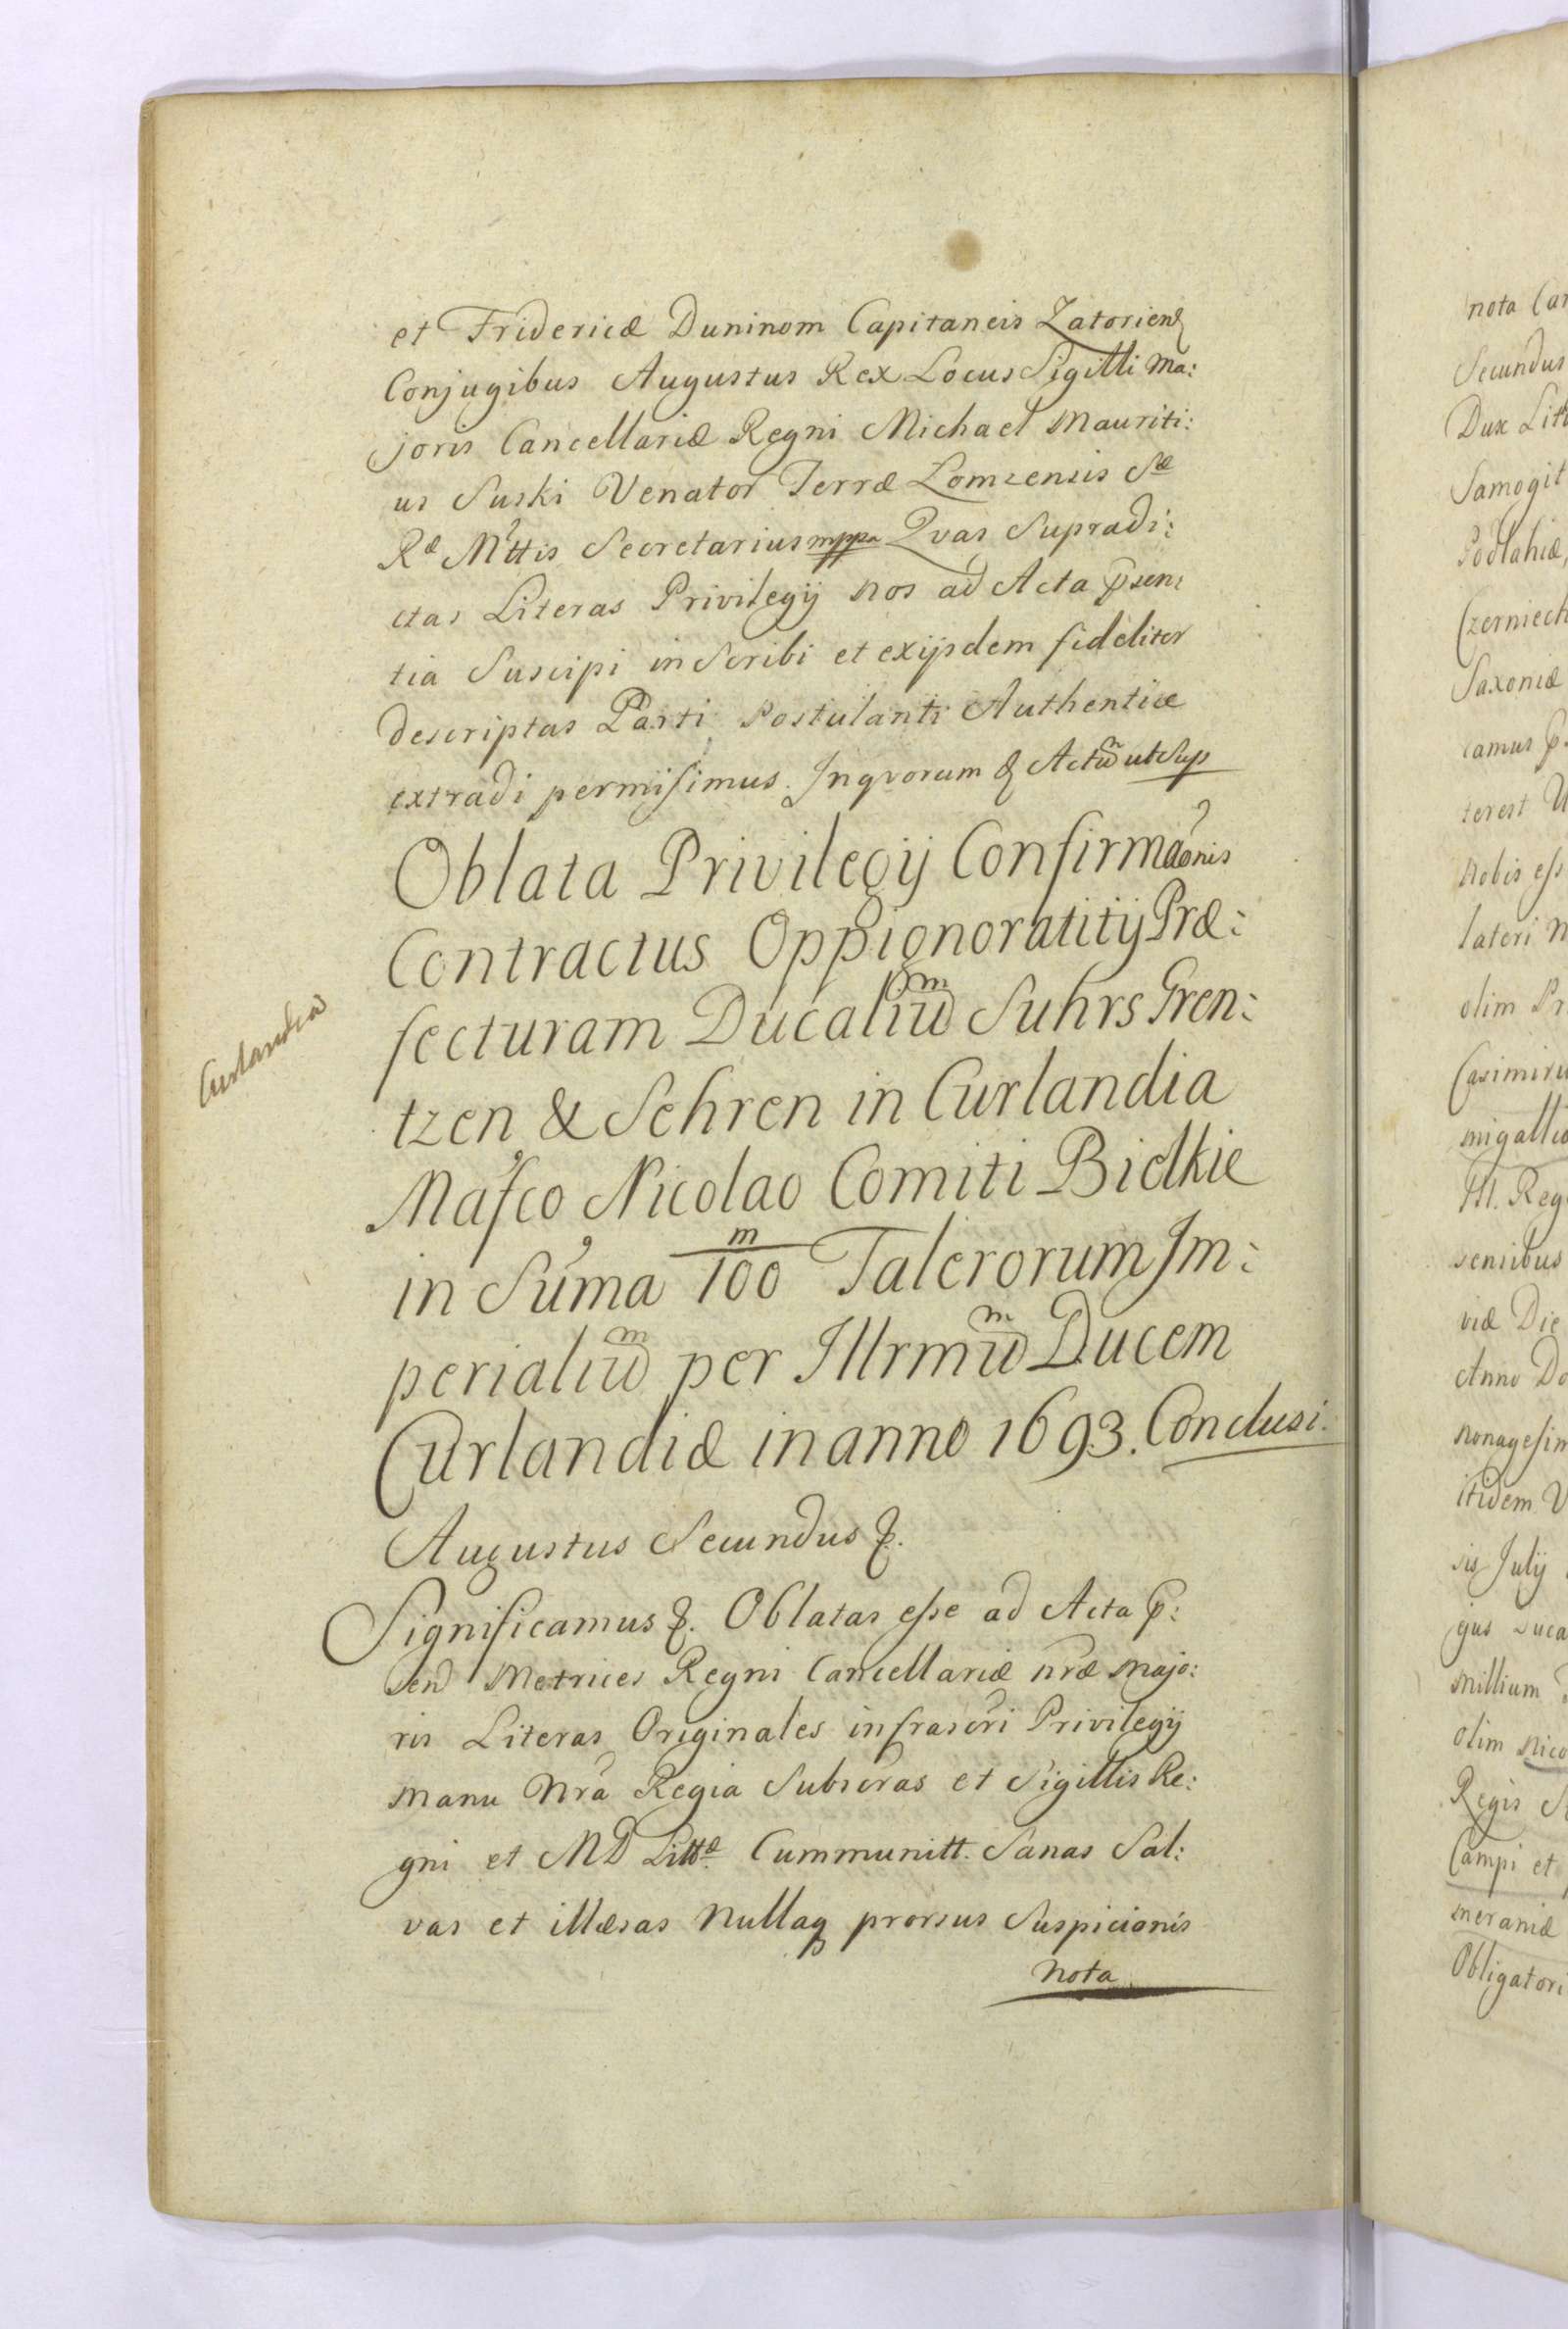 et Fridericæ Duninom Capitaneis Zatorien
Conjugibus Augustus Rex Locus Sigilli Ma:
joris Cancellariæ Regni Michael Mauriti:
us Suski Venator Terræ Lomzensis Sæ
Ræ Mttis Secretarius mppa Qvas Supradi:
ctas Literas Privilegij nos ad Acta psen:
tia Suscipi inscribi et exijsdem fideliter
descriptas Parti Postulanti Authentice
extradi permisimus. Inqvorum & Actũ ut Sup
Oblata Privilegij Confirmaonis
Contractus Oppignoratitij Præ:
fecturam Ducaliũ Suhrs Gren:
tzen & Sehren in Curlandia
Curlandia
Mafco Nicolao Comiti Bielkie
in Suma m/100 Talerorum Im:
perialiũ per Illrmũ Ducem
Curlandiæ in anno 1693. Conclusi.
Augustus Secundus &.
Significamus &. Oblatas esse ad Acta p:
sen Metrices Regni Cancellariæ nræ Majo:
ris Literas Originales infrascri Privilegij
manu Nra Regia Subscras et Sigillis Re:
gni et MD Littæ. Cummunitt. Sanas Sal:
vas et illæsas Nullaq prorsus Suspicionis
Nota
nota
Secundus
Dux
Podlahiæ,
Saxoniæ
camus
terest
nobis
lateri
olim
Ill. Reg
viæ Die
Anno Do
itidem
July
Millium
olim Nico
Regis
Campi et
Obligatori